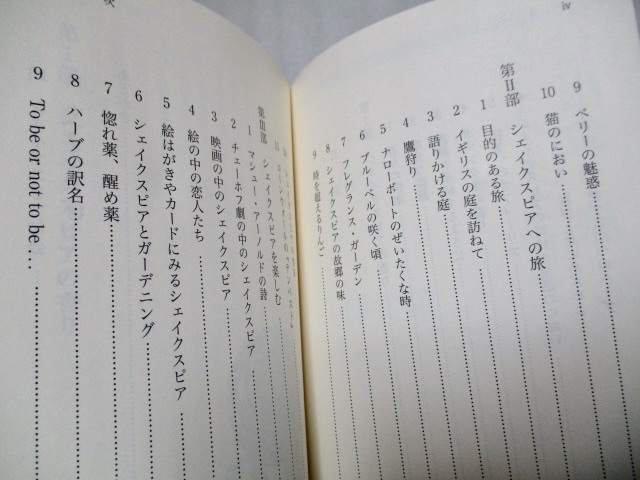 iv
9 ベリーの魅惑
10 猫のにおい
第II部 シェイクスピアへの旅
1 目的のある旅
2 イギリスの庭を訪ねて
3 語りかける庭
4 鷹狩り
5 ナローボートのぜいたくな時
6 ブルーベルの咲く頃
7 フレグランス・ガーデン
8 シェイクスピアの故郷の味
9 時を超えるりんご
第III部 シェイクスピアを楽しむ
1 マシュー・アーノルドの詩
2 チェーホフ劇の中のシェイクスピア
3 映画の中のシェイクスピア
4 絵の中の恋人たち
5 絵はがきやカードにみるシェイクスピア
6 シェイクスピアとガーデニング
7 惚れ薬、醒め薬
8 ハーブの訳名
9 To be or not to be…
次